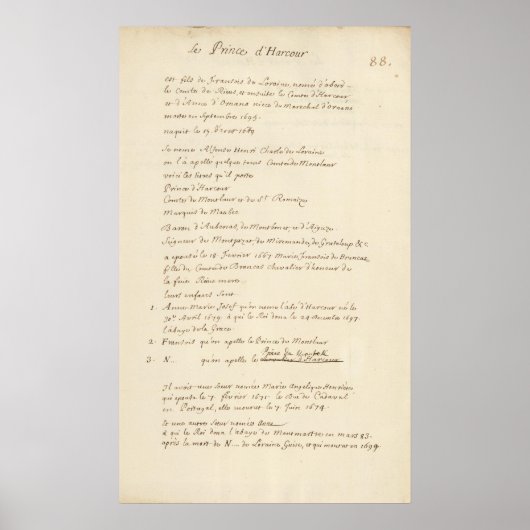 Le Prince d'Harcour
88.
est fils de Francois de Loraine, nomé d'abord
le Comte de Rieux et ensuite le Comte d'Harcour,
et d'Anne d'Ornano niece du Marechal d'Ornano
morte en Septembre 1695.
naquit le 15. d'aoust 1648
Se nome Alfonse Henri Charle de Loraine
on l'a apellé quelque tems Comte de Montlaur
voici les titres qu'il porte
Prince d'Harcour
Comte de Montlaur et de St. Romaize
Marquis de Maubec
Baron d'Aubenas, de Montbonet, et d'
Seigneur de Montpezat, de Miremande, de Grateloup &c
a epousé le 18 Fevrier 1667 Marie Francoise de Brancas,
fille du Comte de Brancas Chevalier d'honeur de
la feue Reine mere
leurs enfans sont
1. Anne Marie Josef qu'on nome l'abé d'Harcour né le
30e. Avril 1679. à qui le Roi dona le 24 decembre 1697.
l'abaye de la Grace
2. Francois qu'on apelle le Prince de Montlaur
3. N... qu'on apelle le
Il avoit une sœur nomée Marie Angelique Henriette
qui epousa le 7. fevrier 1671. le Duc de Cadaval
en Portugal, elle mourut le 7 Juin 1674.
et une autre sœur nomée
à qui le Roi dona l'abaye de Montmartre en mars 83.
après la mort de N.... de Loraine Guise, et qui mourut en 1699.